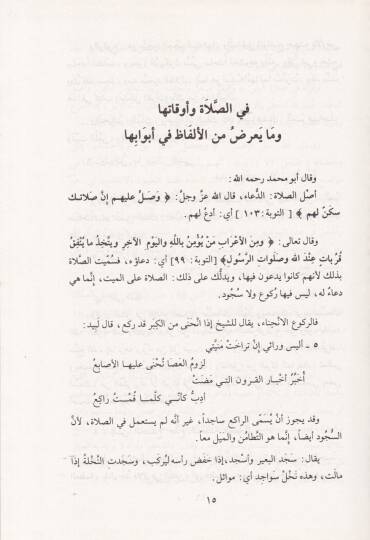 في الصَّلاَة وأوقاتها
ومَا يَعرضُ من الألفَاظ في أبوَابِها
وقال أبو محمد رحمه الله:
أصْل الصلاة: الدُّعاء، قال الله عزّ وجلّ: ﴿ وَصَلِّ عليهم إنَّ صَلاتـك
سكَنٌ لهم ﴾ [ التوبة: ١٠٣ ] أي: ادعُ لهم.
وقال تعالى: ﴿ ومِنَ الأعْرَابِ مَنْ يُؤْمِنُ باللَّهِ واليَومِ الآخِرِ ويتَّخِذُ ما يُنْفِقُ
قُرُباتٍ عِنْدَ الله وصَلَوات الرَّسولِ﴾ [التوبة: ٩٩] أي: دعاؤه، فسُمّيت الصَّلاة
بذلك لأنهم كانوا يدعون فيها، ويدلُّك على ذلك: الصلاة على الميت، إنَّما هي
دعاءٌ له، ليس فيها رُكوع ولا سُجُود.
فالركوع الانْحِناء، يقال للشيخ إذا انْحَنَى من الكِبَر قد ركع، قال لَبيد:
٥ ـ أليس ورائي إنْ تراخَتْ مَنيَّتي
لزومُ العَصَا تُحْنَى عليها الأصابعُ
أُخَبِّرُ أخْبار القرون التي مَضَتْ
أدِبُّ كأنّي كلَّما قُمْتُ راكِعُ
وقد يجوز أنْ يُسَمّى الراكع ساجداً، غير أنَّه لم يستعمل في الصلاة، لأنَّ
السُّجُود أيضاً، إنَّما هو التَّطامُن والمَيَل معاً.
يقال: سَجَد البعير وأسْجد، إذا خَفَض رأسه ليُركَب، وسَجَدتِ النَّخْلَةُ إذا
مالَت، وهذه نَخْلٌ سَواجِد أي: موائل.
١٥